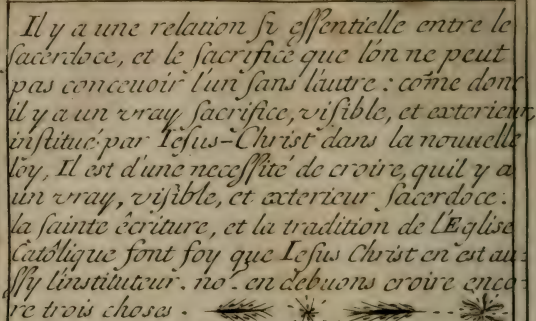 Il y a une relation si essentielle entre le
sacerdoce, et le sacrifice que l'on ne peut
pas conceuoir l'un sans l'autre : cõme donc
il y a un vray sacrifice, visible, et exterieur,
institué par Iesus-Christ dans la nouuelle
loy, Il est d'une necessité de croire, quil y a
un vray, visible, et exterieur sacerdoce :
la sainte êcriture, et la tradition de l'Eglise
Catôlique font foy que Iesus Christ en est au-
ssy l'instituteur. no. en debuons croire enco-
re trois choses.